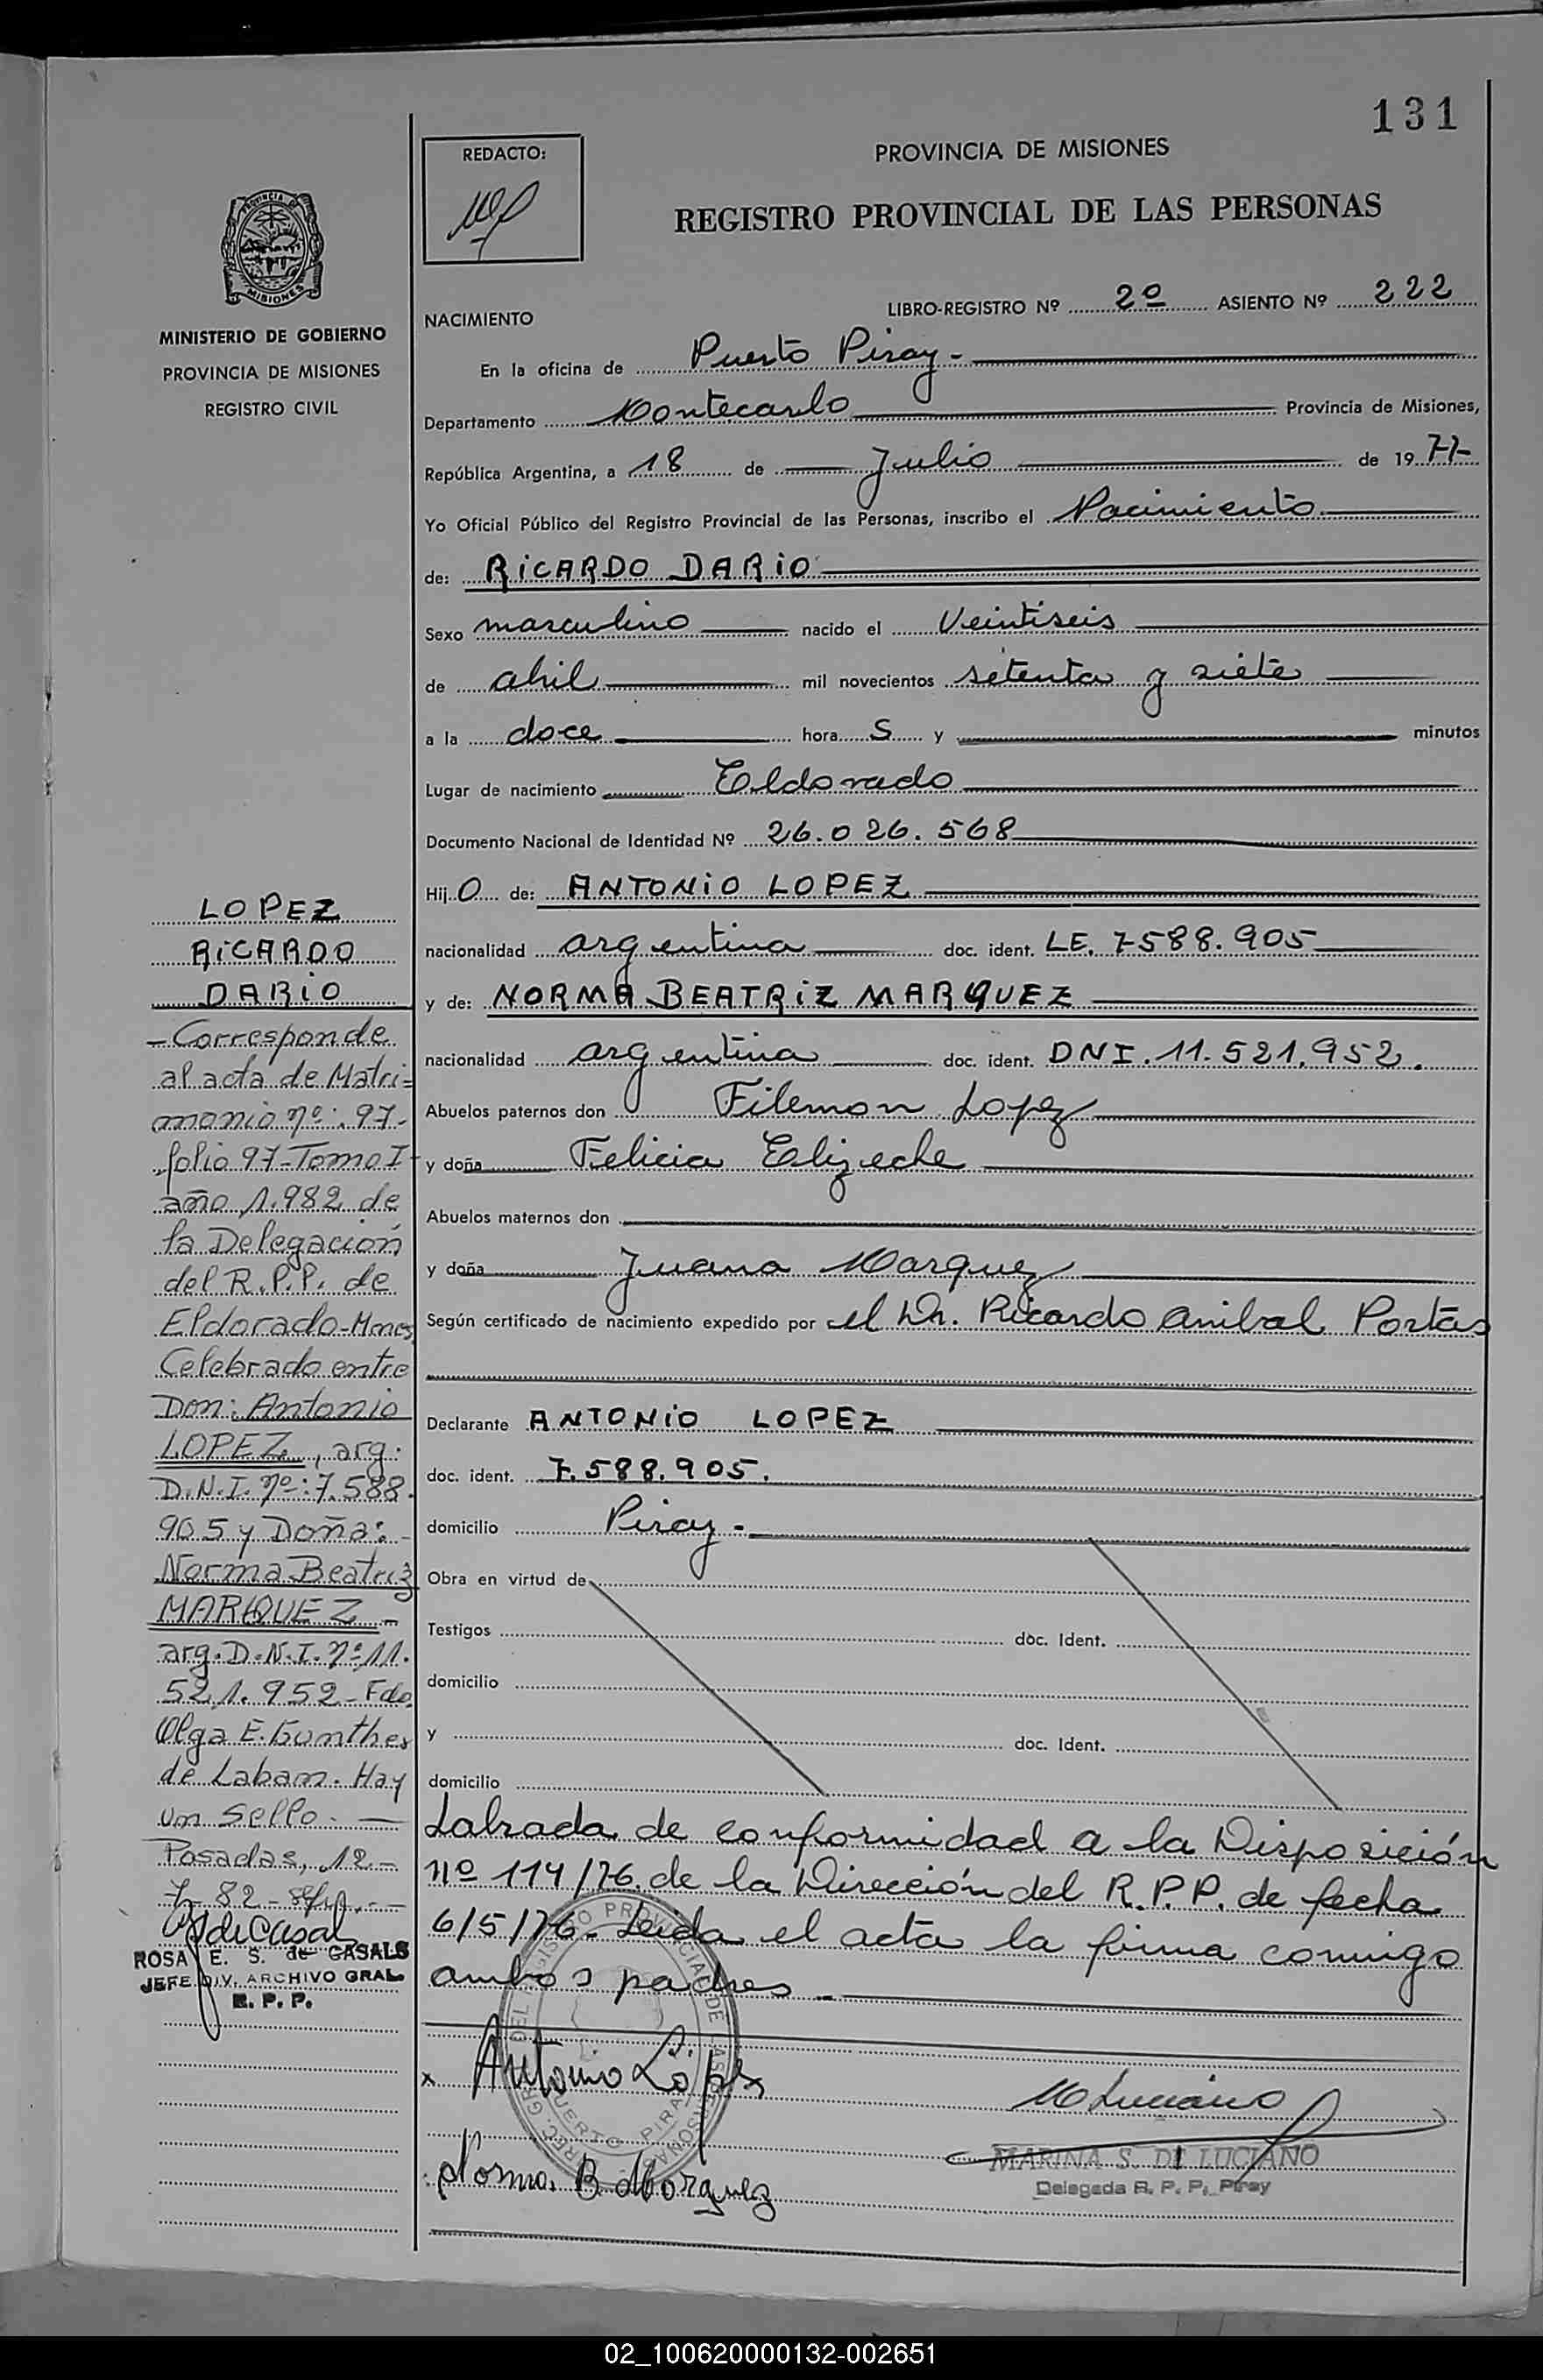 131
REDACTO:
PROVINCIA DE MISIONES
REGISTRO PROVINCIAL DE LAS PERSONAS
LIBRO-REGISTRO Nº 2º ASIENTO Nº 222
NACIMIENTO
En la oficina de Puerto Piray -
Departamento Montecarlo Provincia de Misiones,
República Argentina, a 18 de Julio de 1977-
Yo Oficial Público del Registro Provincial de las Personas, inscribo el Nacimiento
de: RICARDO DARIO
Sexo masculino nacido el Veintiseis
de abril mil novecientos setenta y siete
a la doce hora S y minutos
Lugar de nacimiento Eldorado
Documento Nacional de Identidad Nº 26.026.568
Hij O de: ANTONIO LOPEZ
nacionalidad argentina doc. ident. LE. 7588.905
y de: NORMA BEATRIZ MARQUEZ
nacionalidad argentina doc. ident. DNI. 11.521.952.
Abuelos paternos don Filemon Lopez
y doña Felicia Elizeche
Abuelos maternos don
y doña Juana Marquez
Según certificado de nacimiento expedido por el Dr. Ricardo Anibal Portas
Declarante ANTONIO LOPEZ
doc. ident. 7.588.905.
domicilio Piray -
Obra en virtud de
Testigos doc. Ident.
domicilio
y doc. Ident.
domicilio
Labrada de conformidad a la Disposición
nº 114/76 de la Dirección del R.P.P. de fecha
6/5/76. Leida el acta la firma conmigo
ambos padres -
x Antonio López
Norma B Marquez
M Luciano
MARINA S. DI LUCIANO
Delegada R. P. P. Piray
PROVINCIA DE
MISIONES
MINISTERIO DE GOBIERNO
PROVINCIA DE MISIONES
REGISTRO CIVIL
LOPEZ
RICARDO
DARIO
- Corresponde
al acta de Matri=
monio nº: 97-
folio 97-Tomo I
año 1.982 de
la Delegación
del R.P.P. de
Eldorado-Mnes
Celebrado entre
Don: Antonio
LOPEZ, arg.
D.N.I. nº: 7.588.
905 y Doña: -
Norma Beatriz
MARQUEZ -
arg. D.N.I. nº 11.
521.952 - Fdo.
Olga E. Gunther
de Labam. Hay
un Sello. -
Posadas, 12 -
7- 82 -
ROSA E. S. de CASALS
JEFE DIV. ARCHIVO GRAL
R. P. P.
02_100620000132-002651